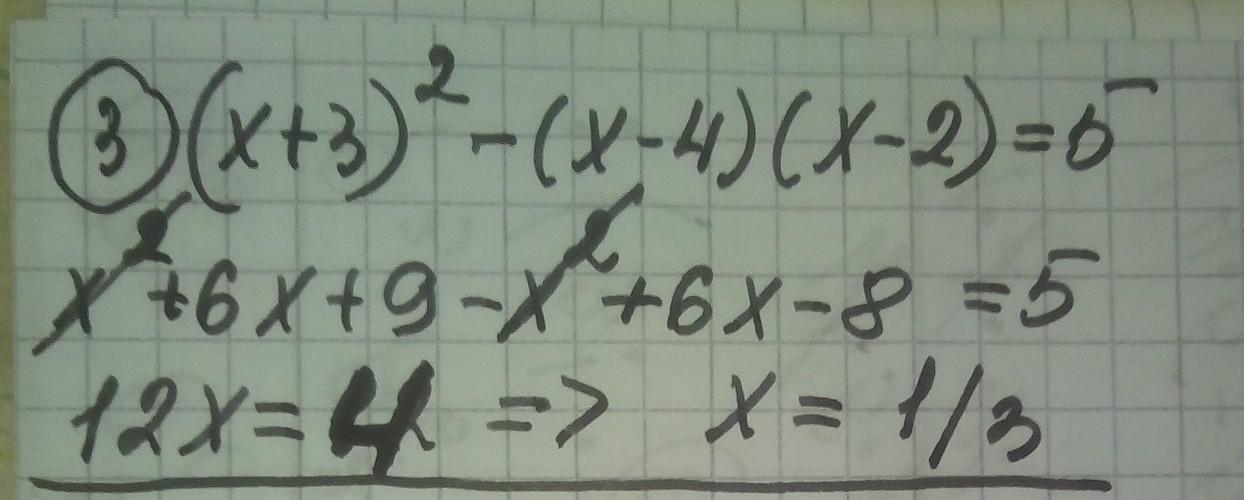 ③ (x+3)² -(x-4)(x-2)=5
x²+6x+9-x²+6x-8=5
12x=4 => x=1/3